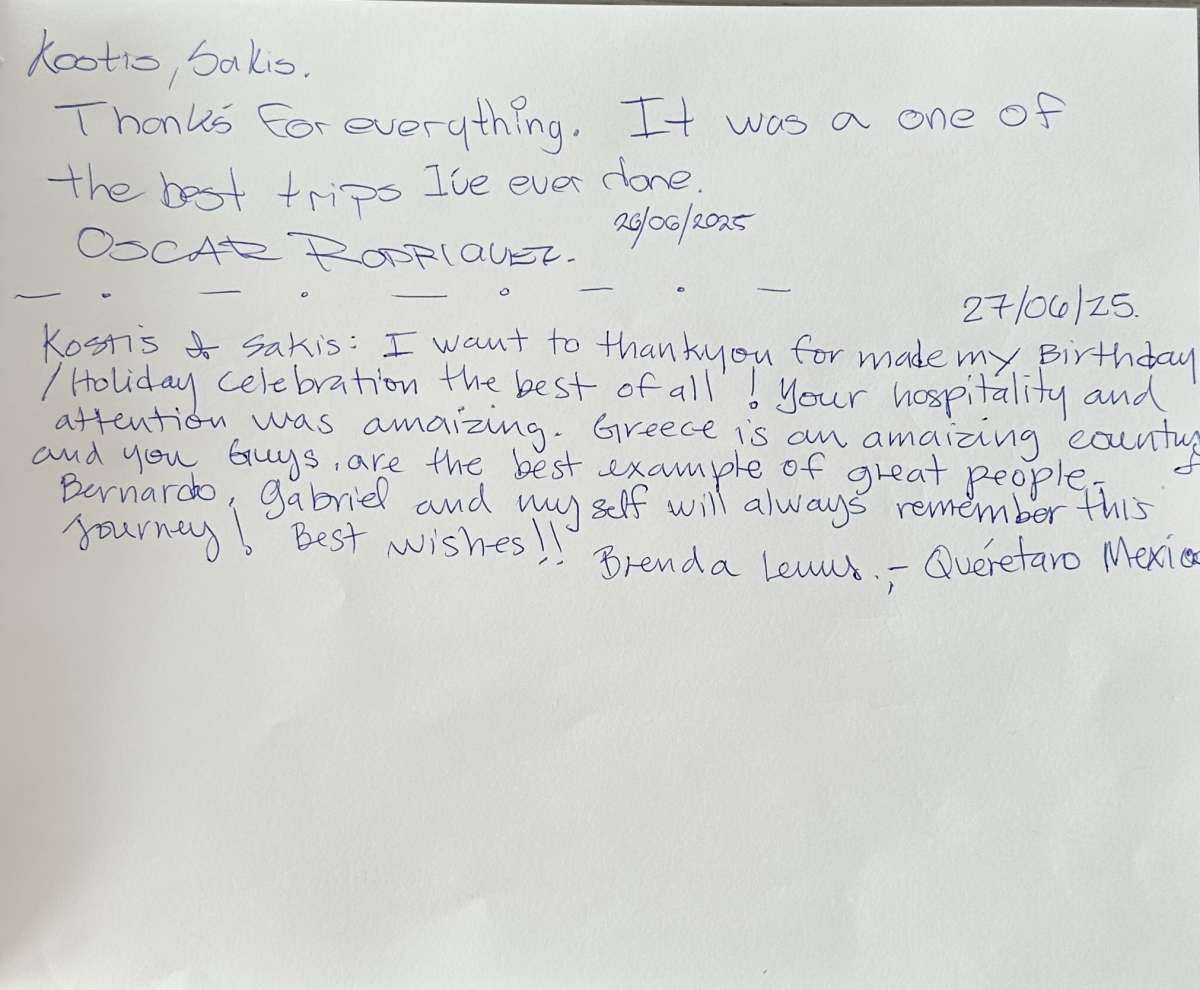 Kostis, Sakis.
Thanks For everything. It was a one of
the best trips I've ever done.
26/06/2025
OSCAR RODRIGUEZ.
27/06/25.
Kostis & Sakis: I want to thankyou for made my Birthday
/Holiday celebration the best of all! Your hospitality and
attention was amaizing. Greece is an amaizing country
and you Guys, are the best example of great people.
Bernardo, Gabriel and my self will always remember this
Journey! Best wishes!!
Brenda Lemus.,- Quéretaro Mexico